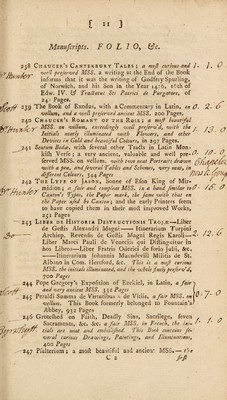 [ 11 ]
Manuscripts. FOLIO, &c.
238 CHAUCER's CANTERBURY TALES; a most curious and
well preserved MSS. a writing at the End of the Book
informs that it was the writing of Godfrey Spurling,
of Norwich, and his Son in the Year 1476, 16th of
Edw. IV. & Tractatus Sti Patricii de Purgatore, of
241 Pages.
239 The Book of Exodus, with a Commentary in Latin, on
vellum, and a well preserved ancient MSS. 200 Pages.
240 CHAUCER's ROMANT OF THE ROSE; a most beautiful
MSS. on vellum, exceedingly well preserv'd, with the
Initials neatly Illuminated with Flowers, and other
Devices in Gold and beautiful Colours, in 297 Pages.
241 Beatum Bedas, with several other Tracts in Latin Mon-
kish Verse; a very ancient, valuable and well pre-
served MSS. on vellum. with two neat Portraits drawn
with a pen, and several Tables and Schemes, very neat, of
different Colours, 504 Pages
242 THE LYFE OF JASON, Sonne of Eson King of Mir-
midion; a fair and compleat MSS. in a hand similar to
Caxton's Types, the Paper mark, the same with that on
the Paper used by Caxton; and the early Printers seem
to have copied them in their most improved Works,
251 Pages
243 LIBER DE HISTORIA DESTRUCTIONIS TROJÆ—Liber
de Gestis Alexandri Magni—Itinerarium Turpini
Archiep. Remensis de Gestis Magni Regis Karoli—
Liber Marci Pauli de Venetiis qui Distinguitur in
tres Libros—Liber Fratris Oderici de forio Julii, &c.
—Itinerarium Johannis Maundevili Militis de St.
Albano in Com. Hertford, &c. This is a most curious
MSS. the initials illuminated, and the whole finely preserv'd,
700 Pages
244 Pope Gregory's Exposition of Ezekiel, in Latin, a fair
and very ancient MSS. 332 Pages
245 Peraldi Summa de Virtutibus & de Vitiis, a fair MSS. on
vellum. This Book formerly belonged to Fountain's
Abbey, 932 Pages
246 Grotesthed on Faith, Deadly Sins, Sacrilege, seven
Sacraments, &c. &c. a fair MSS. in French, the ini-
tials are neat and embellished. This Book contains se-
veral curious Drawings, Paintings, and Illuminations,
400 Pages
247 Psalterium; a most beautiful and ancient MSS.—the
C 2